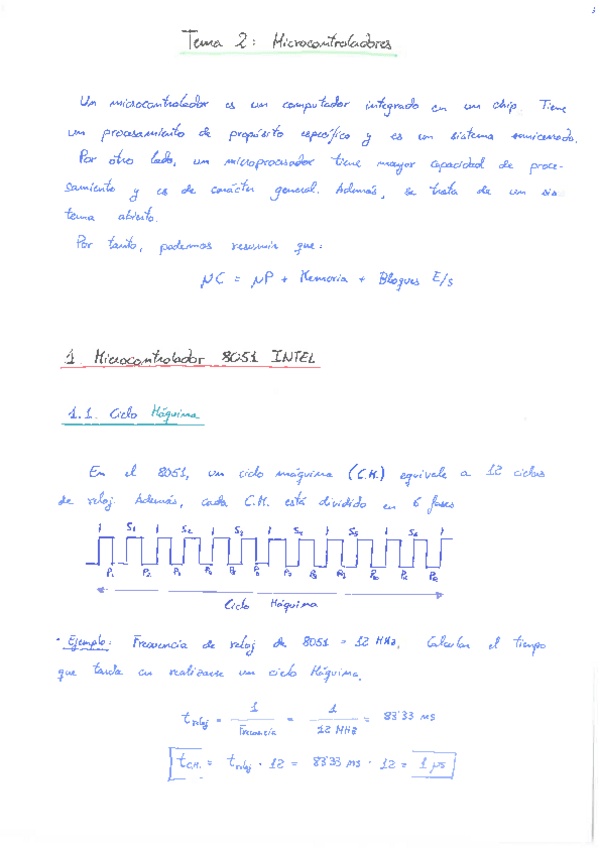 Tema 2: Microcontroladores
Un microcontrolador es un computador integrado en un chip. Tiene
un procesamiento de propósito específico y es un sistema semicerrado.
Por otro lado, un microprocesador tiene mayor capacidad de proce-
samiento y es de carácter general. Además, se trata de un sis
tema abierto.
Por tanto, podemos resumir que:
µC = µP + Memoria + Bloques E/S
1. Microcontrolador 8051 INTEL
1.1. Ciclo Máquina
En el 8051, un ciclo máquina (C.M.) equivale a 12 ciclos
de reloj. Además, cada C.M. está dividido en 6 fases
S1 S2 S3 S4 S5 S6
P1 P2
Ciclo Máquina
· Ejemplo: Frecuencia de reloj de 8051 = 12 MHz. Calcular el tiempo
que tarda en realizarse un ciclo Máquina.
t reloj = 1 / Frecuencia = 1 / 12 MHz = 83'33 ms
t C.M. = t reloj · 12 = 83'33 ms · 12 = 1 µs